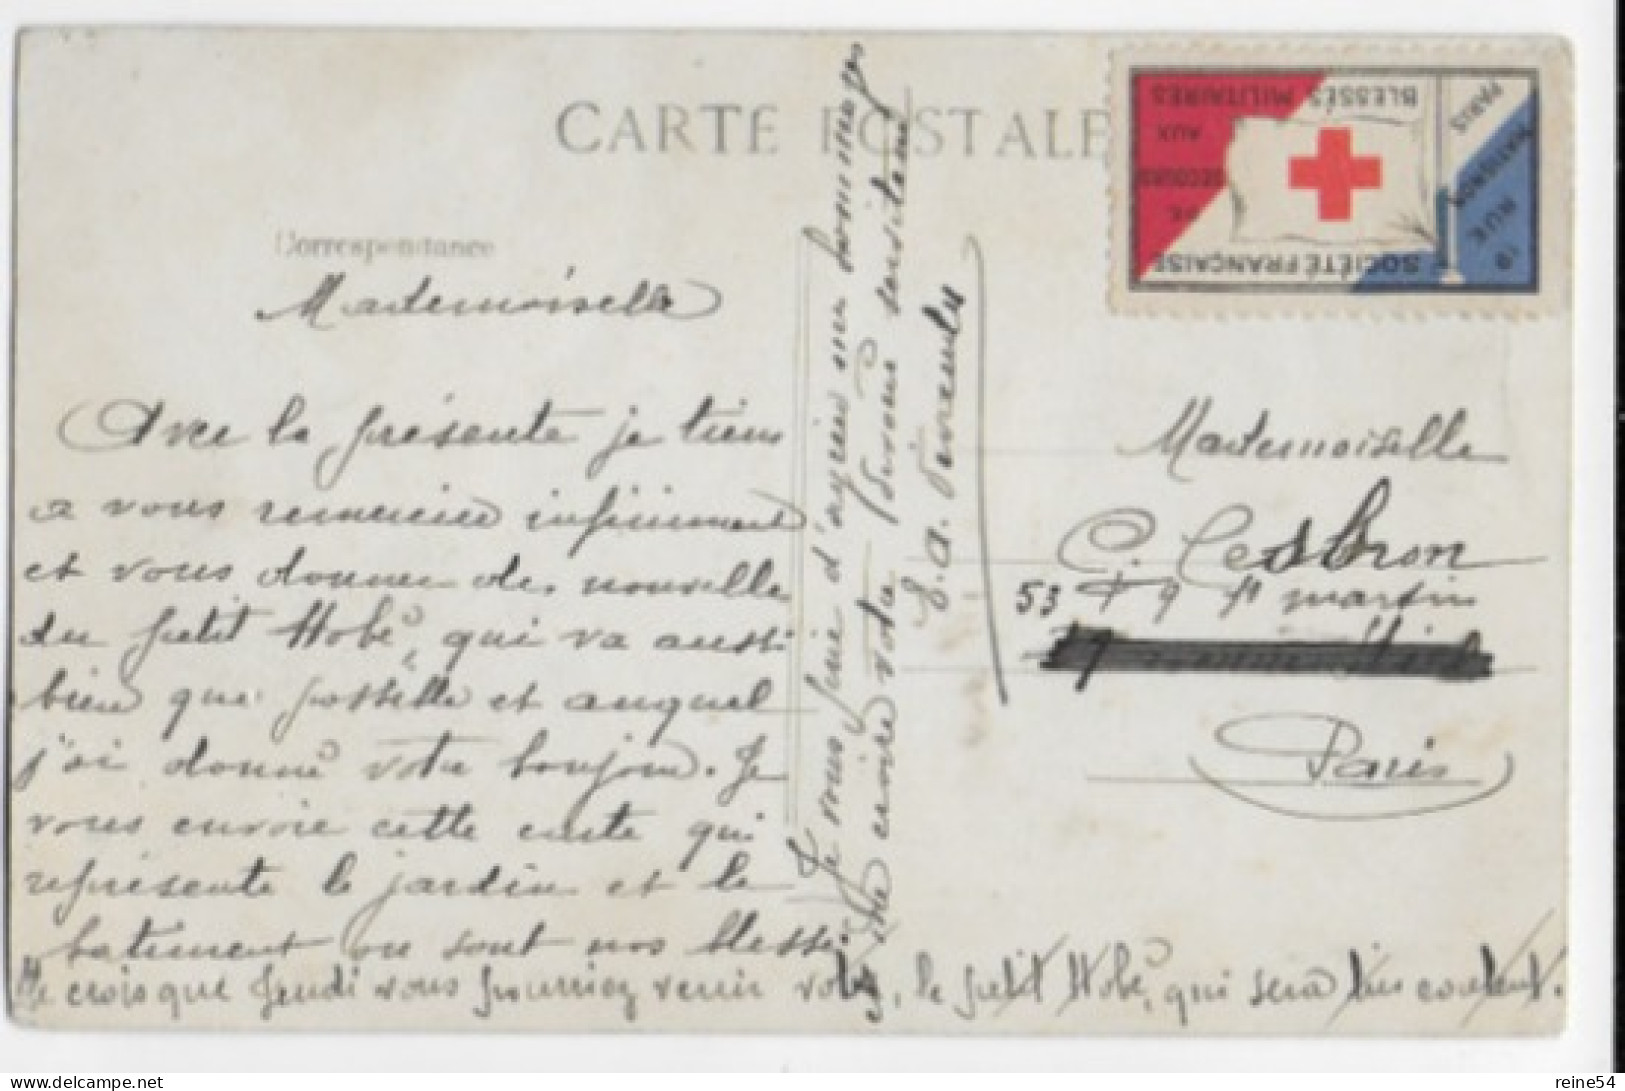 CARTE POSTALE
Correspondance
Mademoiselle
Avec la présente je tiens
a vous remercier infiniment
et vous donner des nouvelle
du petit Hobé, qui va aussi
bien que possible et auquel
j'ai donné votre bonjour. Je
vous envoie cette carte qui
représente le jardin et le
batiment ou sont nos blessés
Je crois que Jeudi vous pourriez venir voir, le petit Hobé, qui sera bien content.
Je vous prie d'agréer mes hommages
et me croire votre dévoué
E. A.
SOCIÉTÉ FRANÇAISE
DE
SECOURS
AUX
BLESSÉS MILITAIRES
19
RUE
MATIGNON
PARIS
Mademoiselle
C. Cesbron
53 Fg St martin
Paris
reine54